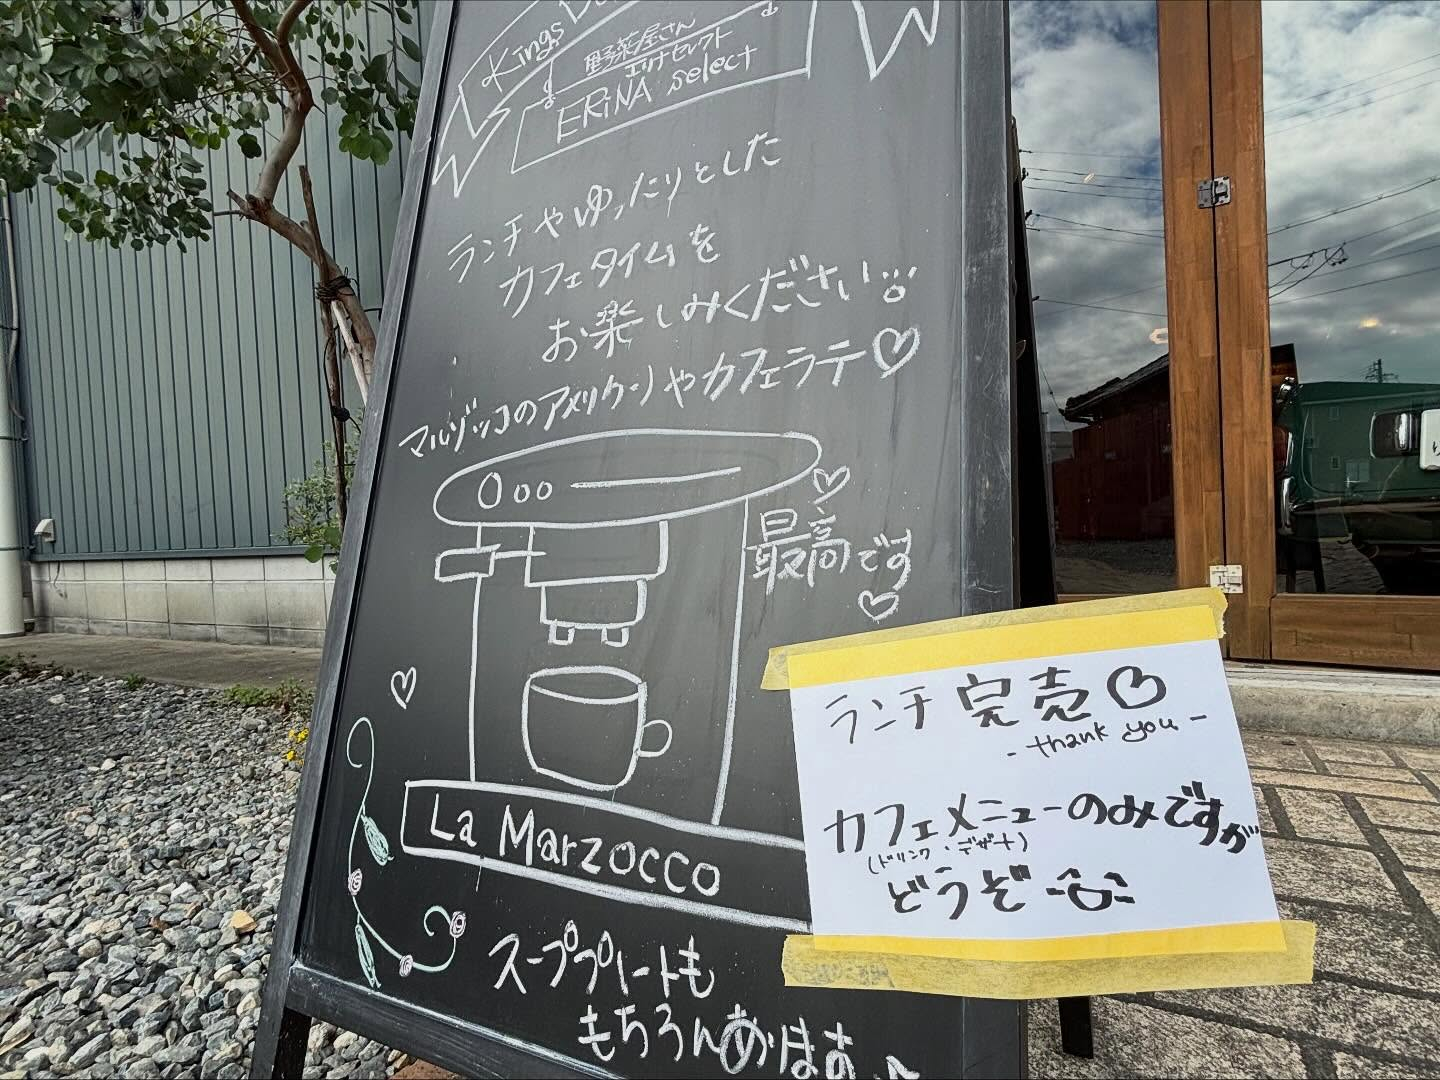 Kings
野菜屋さん
エリナセレクト
ERiNA select
ランチやゆったりとした
カフェタイムを
お楽しみください
マルゾッコのアメリカーノやカフェラテ♡
最高です
La Marzocco
スーププレートも
もちろんあります♪
ランチ完売♡
- thank you -
カフェメニューのみですが
(ドリンク・デザート)
どうぞ